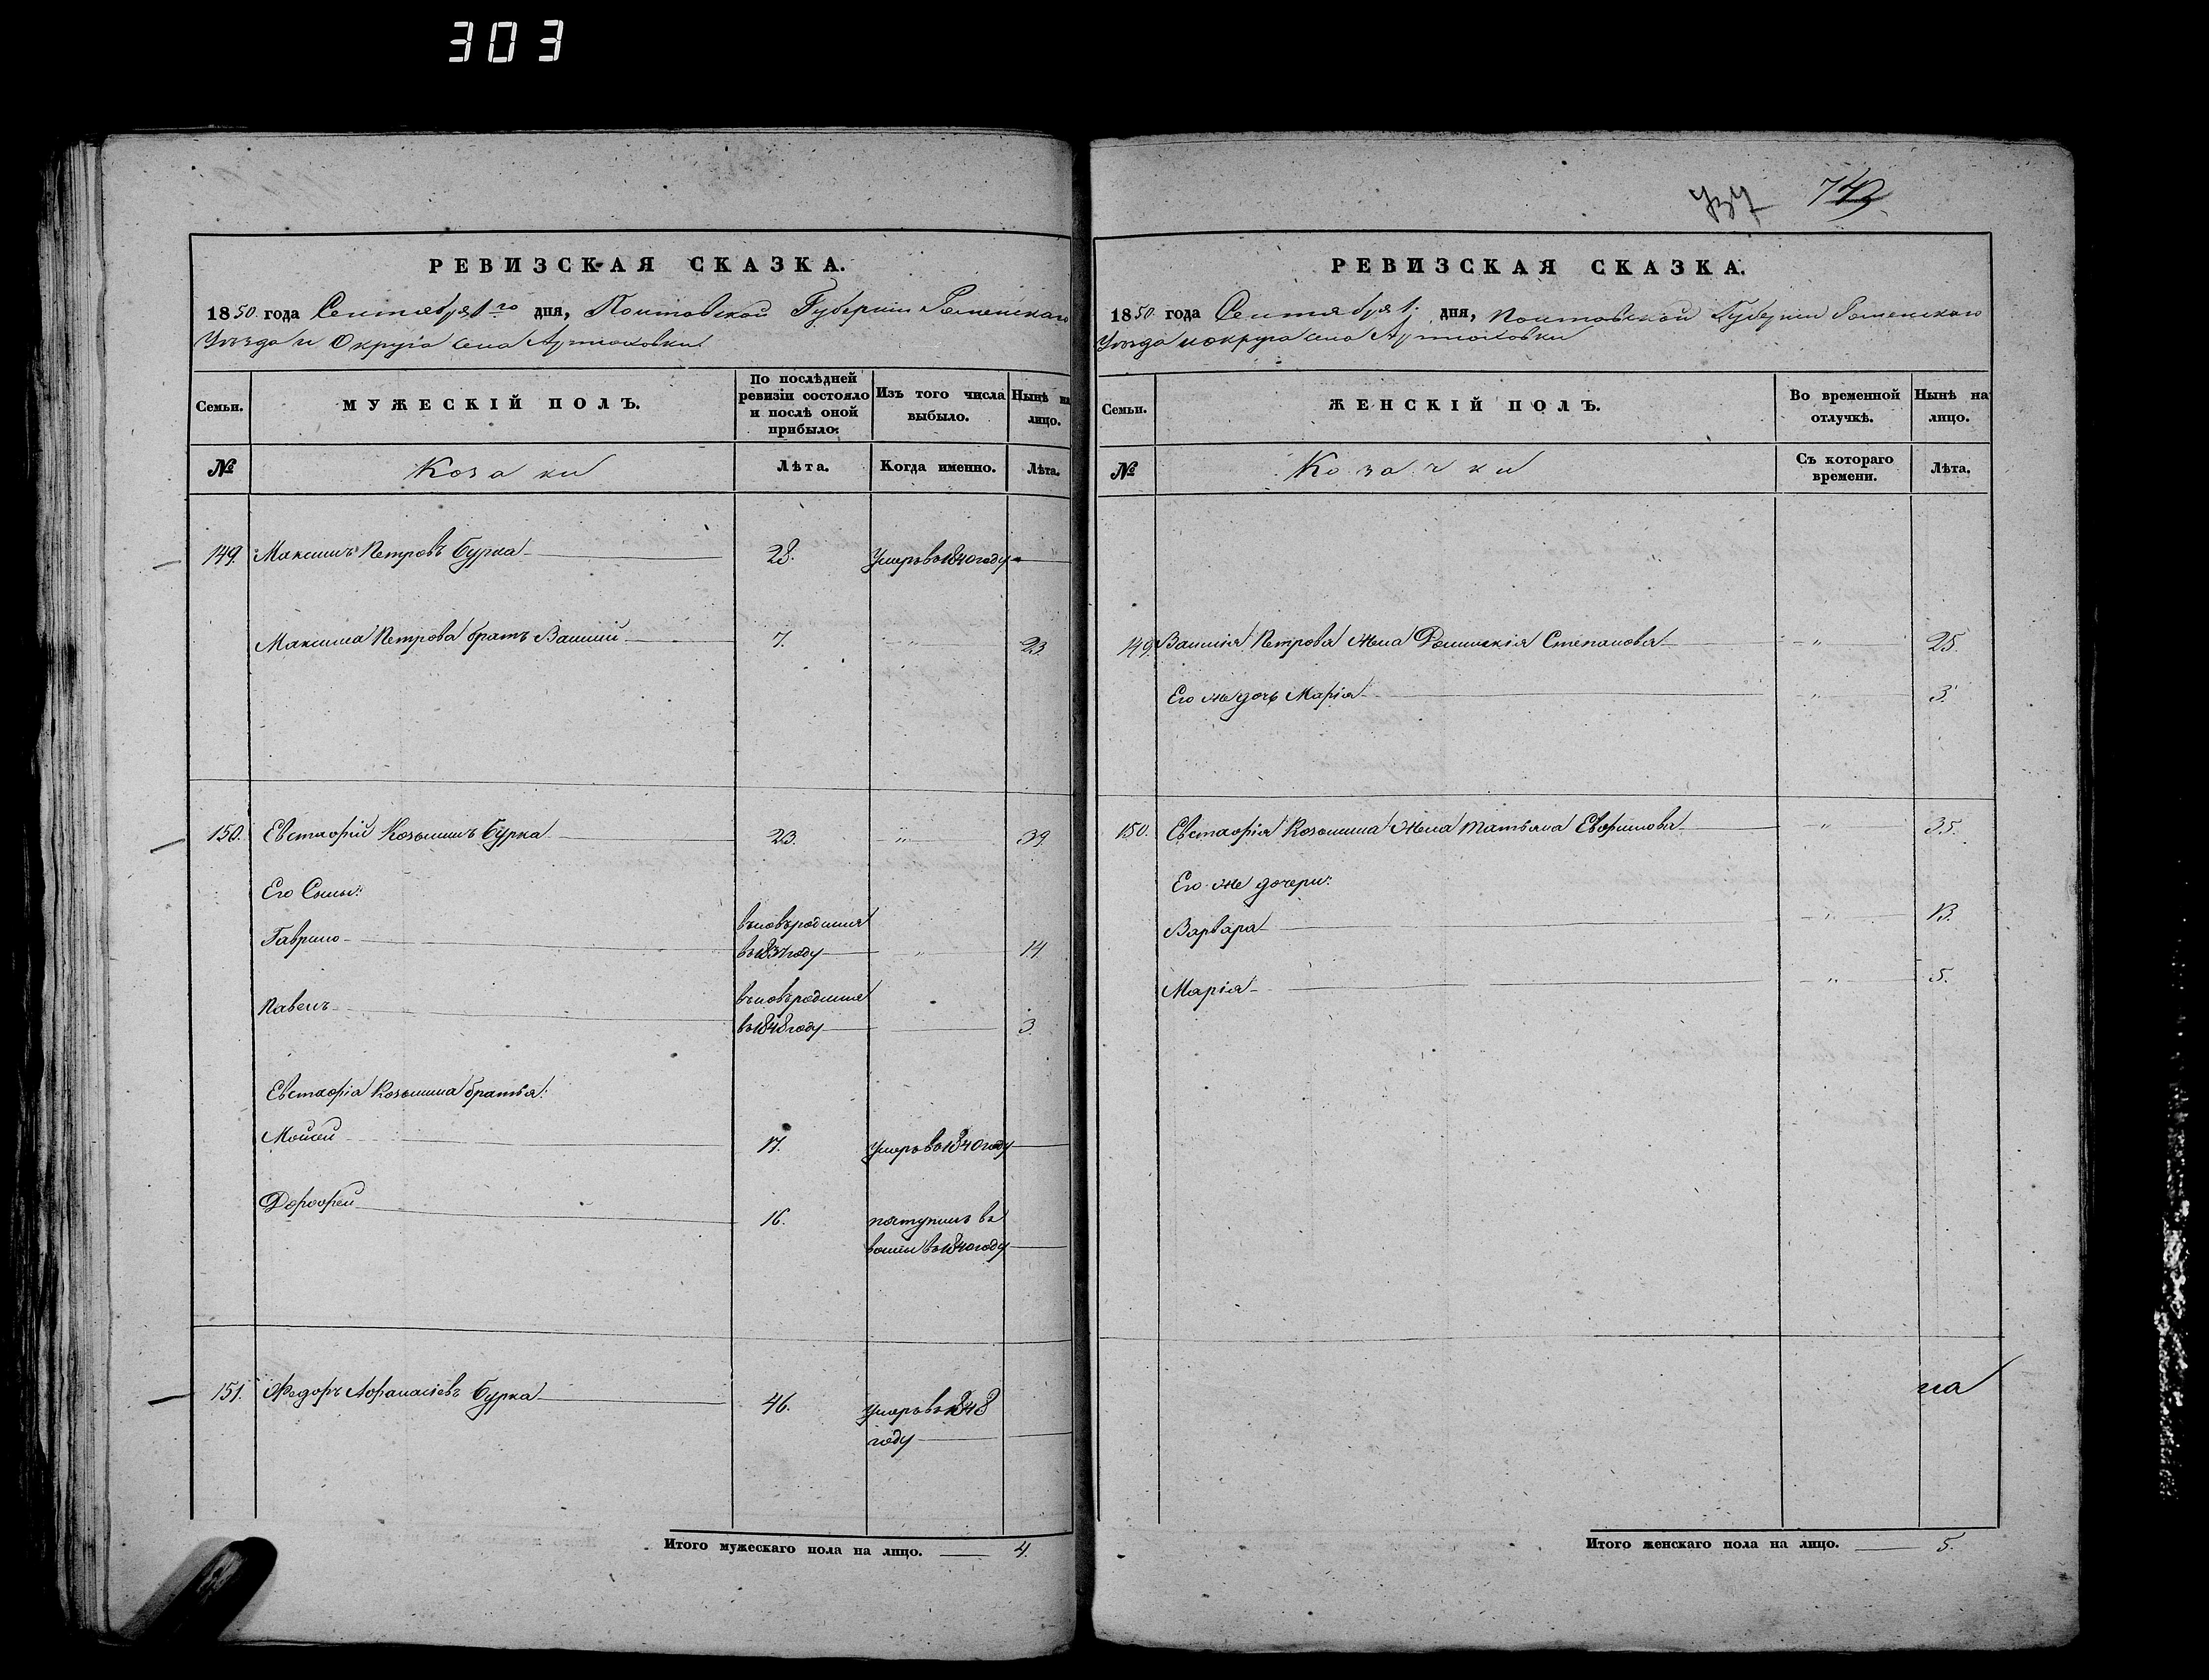 303
737 743
РЕВИЗСКАЯ СКАЗКА.
1850 года Сентября 1го дня, Полтавской Губернии Роменскаго
Уезда и Округа села Артюховки
Семьи. МУЖЕСКІЙ ПОЛЪ. По послѣдней ревизіи состояло и послѣ оной прибыло: Изъ того числа выбыло. Нынѣ на лицо.
№ Козаки Лѣта. Когда именно. Лѣта.
149. Максимъ Петровъ Бурка 28. Умеръ въ 1840 году
Максима Петрова братъ Василій 7. " 23.
150. Евстафій Козьминъ Бурка 23. " 39.
Его Сыны:
Гаврило вновь родился
въ 1837 году " 14.
Павелъ вновь родился
въ 1848 году 3.
Евстафія Козьмина братья:
Моисей 17. Умеръ въ 1840 году
Дорофей 16. поступилъ въ
въ 1840 году
151. Федоръ Афанасіевъ Бурка 46. Умеръ въ 1848
году
Итого мужескаго пола на лицо. 4.
РЕВИЗСКАЯ СКАЗКА.
1850 года Сентября 1. дня, Полтавской Губернии Роменскаго
Уезда и округа села Артюховки
Семьи. ЖЕНСКІЙ ПОЛЪ. Во временной отлучкѣ. Нынѣ на лицо.
№ Козачки Съ котораго времени. Лѣта.
149. Василія Петрова жена Домникія Степанова " 25.
Его же дочь Марія " 3.
150. Евстафія Козьмина жена Татьяна Евфимова " 35.
Его же дочери:
Варвара " 13.
Марія " 5.
на
Итого женскаго пола на лицо. 5.